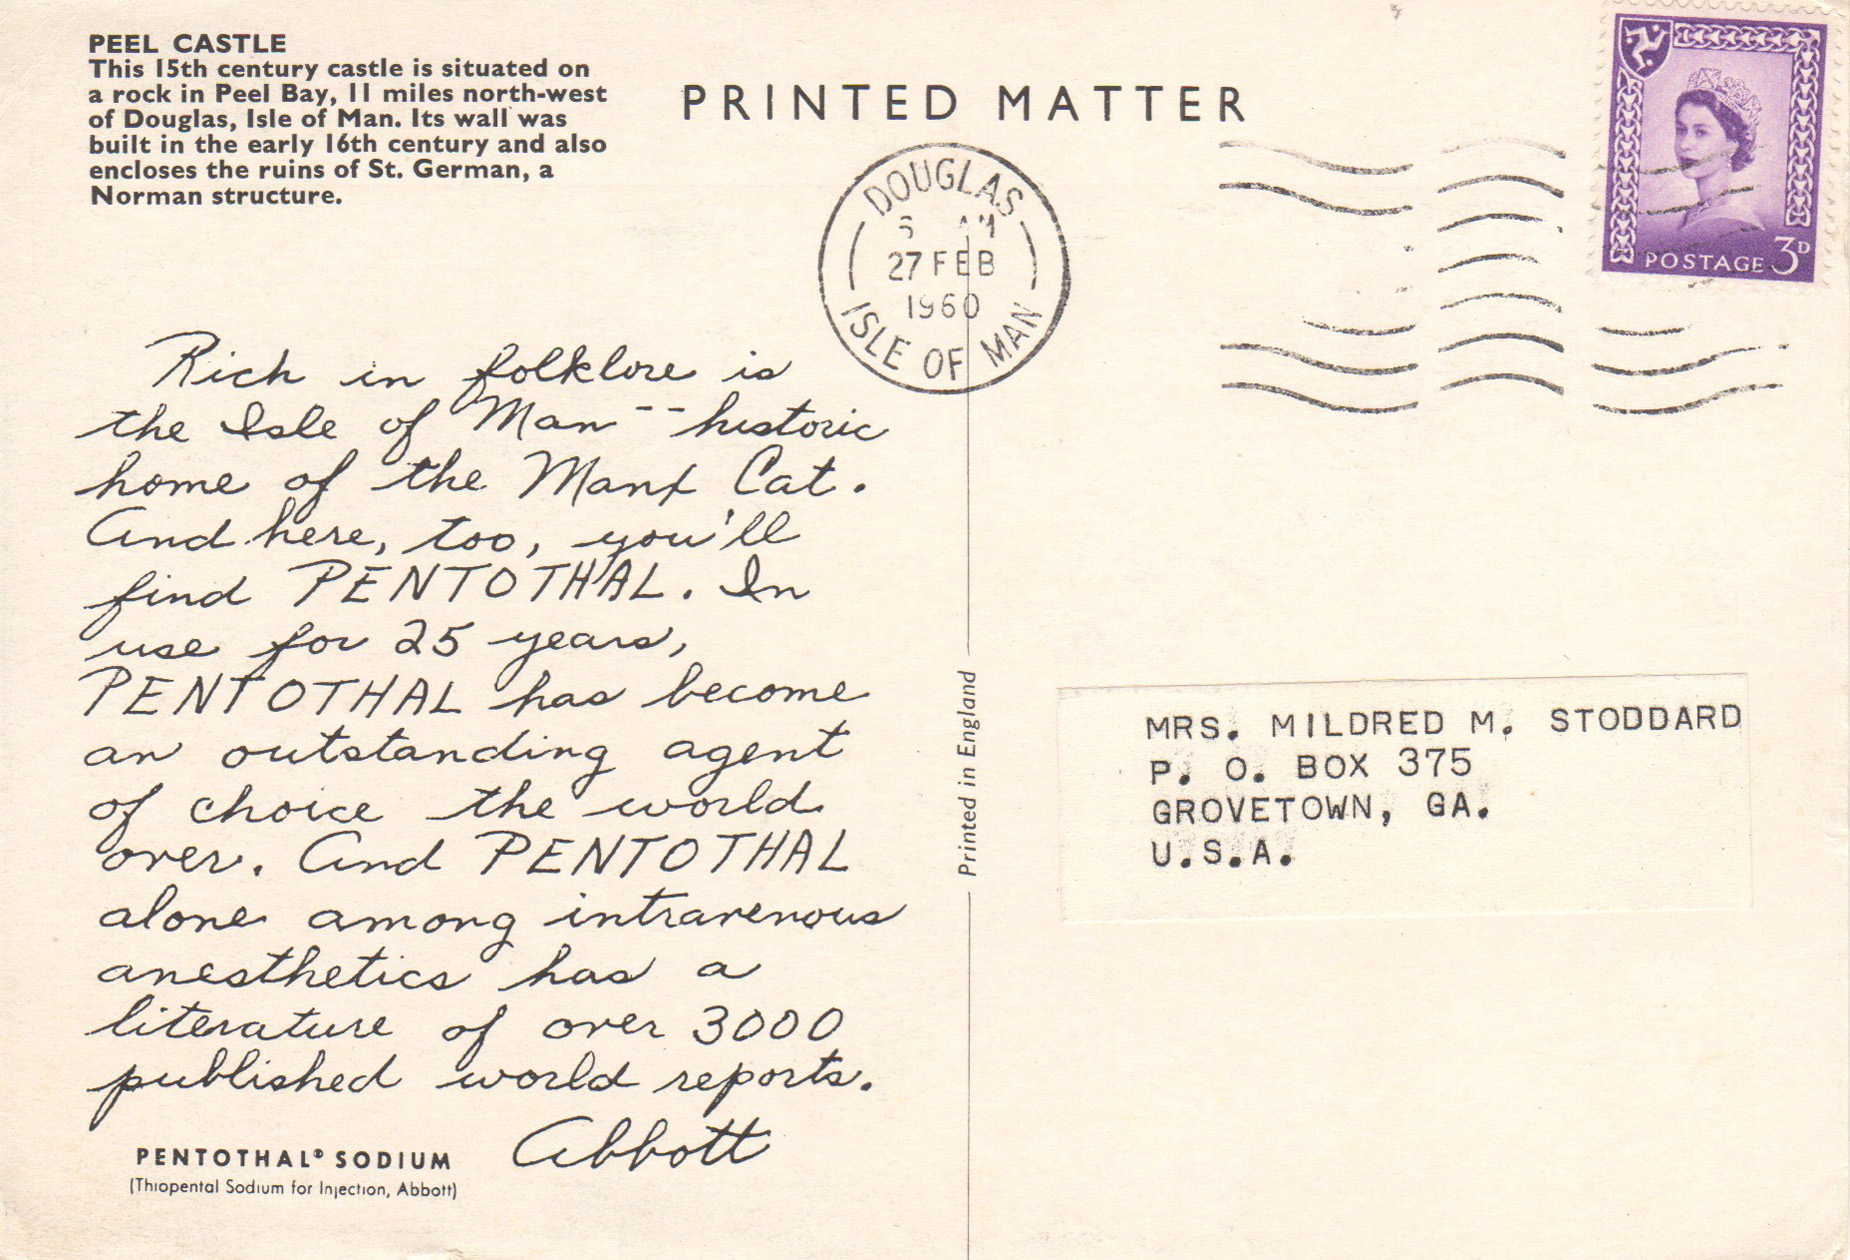 PEEL CASTLE
This 15th century castle is situated on
a rock in Peel Bay, 11 miles north-west
of Douglas, Isle of Man. Its wall was
built in the early 16th century and also
encloses the ruins of St. German, a
Norman structure.
PRINTED MATTER
DOUGLAS
AM
27 FEB
1960
ISLE OF MAN
POSTAGE 3D
Rich in folklore is
the Isle of Man -- historic
home of the Manx Cat.
And here, too, you'll
find PENTOTHAL. In
use for 25 years,
PENTOTHAL has become
an outstanding agent
of choice the world
over. And PENTOTHAL
alone among intravenous
anesthetics has a
literature of over 3000
published world reports.
Abbott
PENTOTHAL® SODIUM
(Thiopental Sodium for Injection, Abbott)
Printed in England
MRS. MILDRED M. STODDARD
P. O. BOX 375
GROVETOWN, GA.
U.S.A.